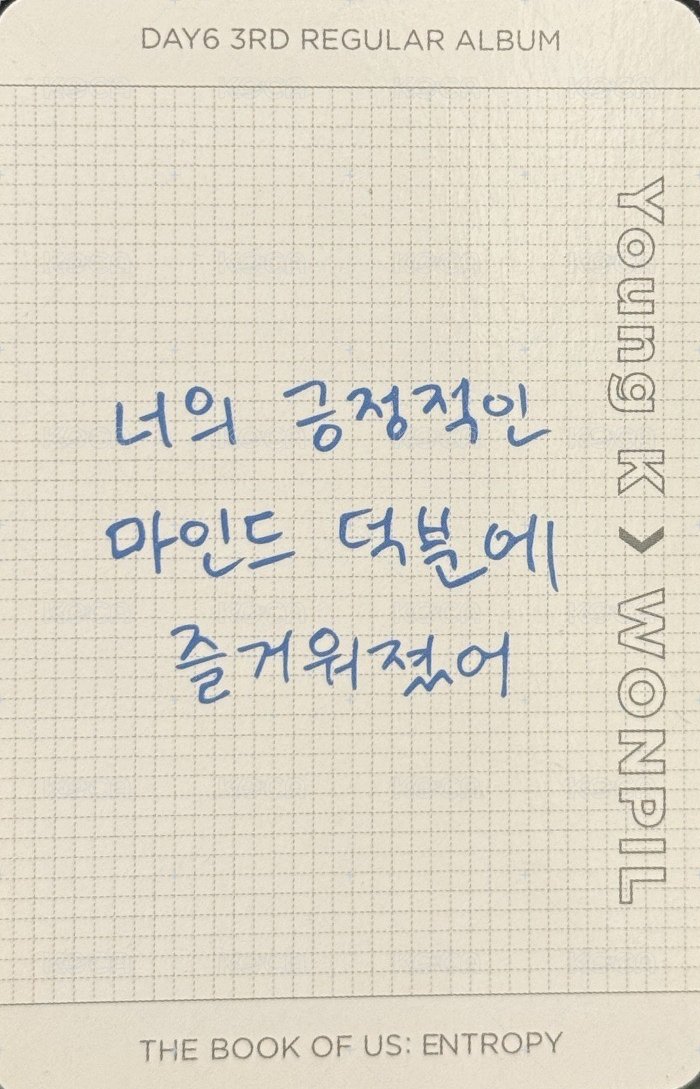 DAY6 3RD REGULAR ALBUM
너의 긍정적인
마인드 덕분에
즐거워졌어
Young K > WONPIL
THE BOOK OF US: ENTROPY